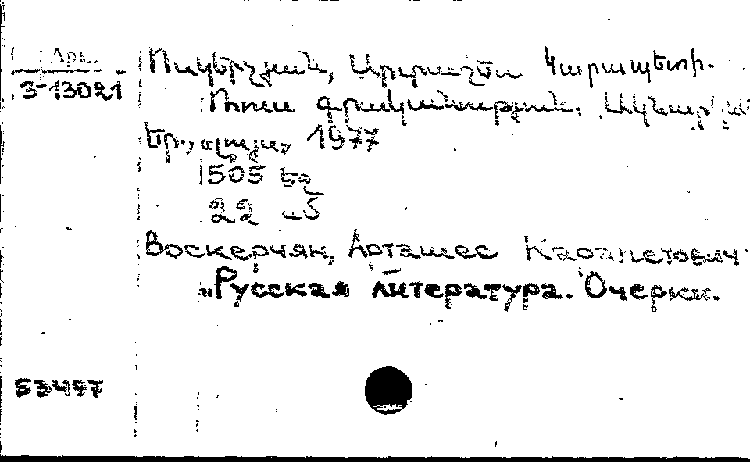 Արև.
3-13021
Ոսկերչյան, Արտաշես Կարապետի.
Ռուս գրականություն. Ակնարկ
Եր., «Լույս», 1977
505 էջ
22 սմ
Воскерчян, Арташес Карапетович
„Русская литература. Очерки.
53477